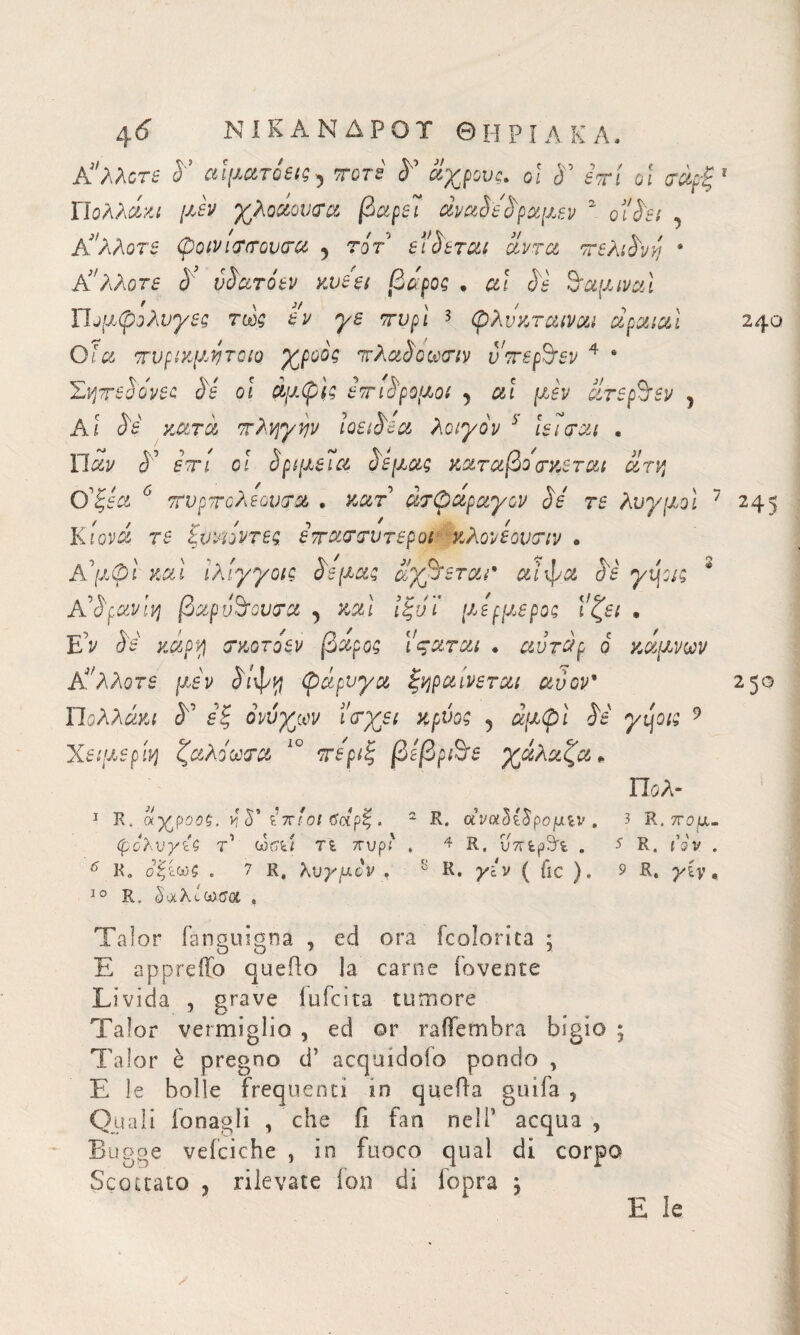 46 ΝΙΚΑΝΔΡΟΥ ΘΗΡΙΑΚΑ.
Α῎λλοτε δ᾽ αἱματόεις, ποτὲ δ᾽ ἄχρους. οἱ δ᾽ ἐπί οἱ σάρξ ¹
Πολλάκι μὲν χλοάουσα βαρεῖ ἀναδέδραμεν ² οἴδει,
Α῎λλοτε φοινίσσουσα, τότ᾽ εἴδεται ἄντα πελιδνή ·
Α῎λλοτε δ᾽ ὑδατόεν κυέει βάρος . αἱ δὲ θαμιναὶ
Πομφόλυγες τὼς ἔν γε πυρὶ ³ φλύκταιναι ἀραιαὶ 240
Οἷα πυρικμήτοιο χροὸς πλαδόωσιν ὕπερθεν ⁴ ·
Σηπεδόνες δέ οἱ ἀμφὶς ἐπίδρομοι, αἱ μὲν ἄτερθεν,
Αἱ δὲ κατὰ πληγὴν ἰοειδέα λοιγὸν ⁵ ἱεῖσαι .
Πᾶν δ᾽ ἐπί οἱ δριμεῖα δέμας καταβόσκεται ἄτη
Ο᾽ξέα ⁶ πυρπολέουσα . κατ᾽ ἀσφάραγον δέ τε λυγμοὶ ⁷ 245
Κίονά τε ξυνιόντες ἐπασσύτεροι κλονέουσιν .
Α᾽μφὶ καὶ ἰλίγγοις δέμας ἄχθεται· αἶψα δὲ γυίοις ⁸
Α᾽δρανίη βαρύθουσα, καὶ ἰξύϊ μέρμερος ἵζει .
Ε᾽ν δὲ κάρη σκοτόεν βάρος ἵσταται . αὐτὰρ ὁ κάμνων
Α῎λλοτε μὲν δίψῃ φάρυγα ξηραίνεται αὖον· 250
Πολλάκι δ᾽ ἐξ ὀνύχων ἴσχει κρύος, ἀμφὶ δὲ γυίοις ⁹
Χειμερίη ζαλόωσα ¹⁰ πέριξ βέβριθε χάλαζα.
Πολ-
¹ R. ἄχροος. ἡ δ᾽ ἐπίοι σάρξ . ² R. ἀναδέδρομεν . ³ R. πομ-
φόλυγές τ᾽ ὡσεί τε πυρί . ⁴ R. ὕπερθε . ⁵ R. ἰόν .
⁶ R. ὀξέως . ⁷ R. λυγμόν . ⁸ R. γέν ( sic ). ⁹ R. γέν .
¹⁰ R. δαλέωσα .
Talor ſanguigna , ed ora ſcolorita ;
E appreſſo queſto la carne ſovente
Livida , grave ſuſcita tumore
Talor vermiglio , ed or raſſembra bigio ;
Talor è pregno d' acquidoſo pondo ,
E le bolle frequenti in queſta guiſa ,
Quali ſonagli , che ſi fan nell' acqua ,
Bugge veſciche , in fuoco qual di corpo
Scottato , rilevate ſon di ſopra ;
E le